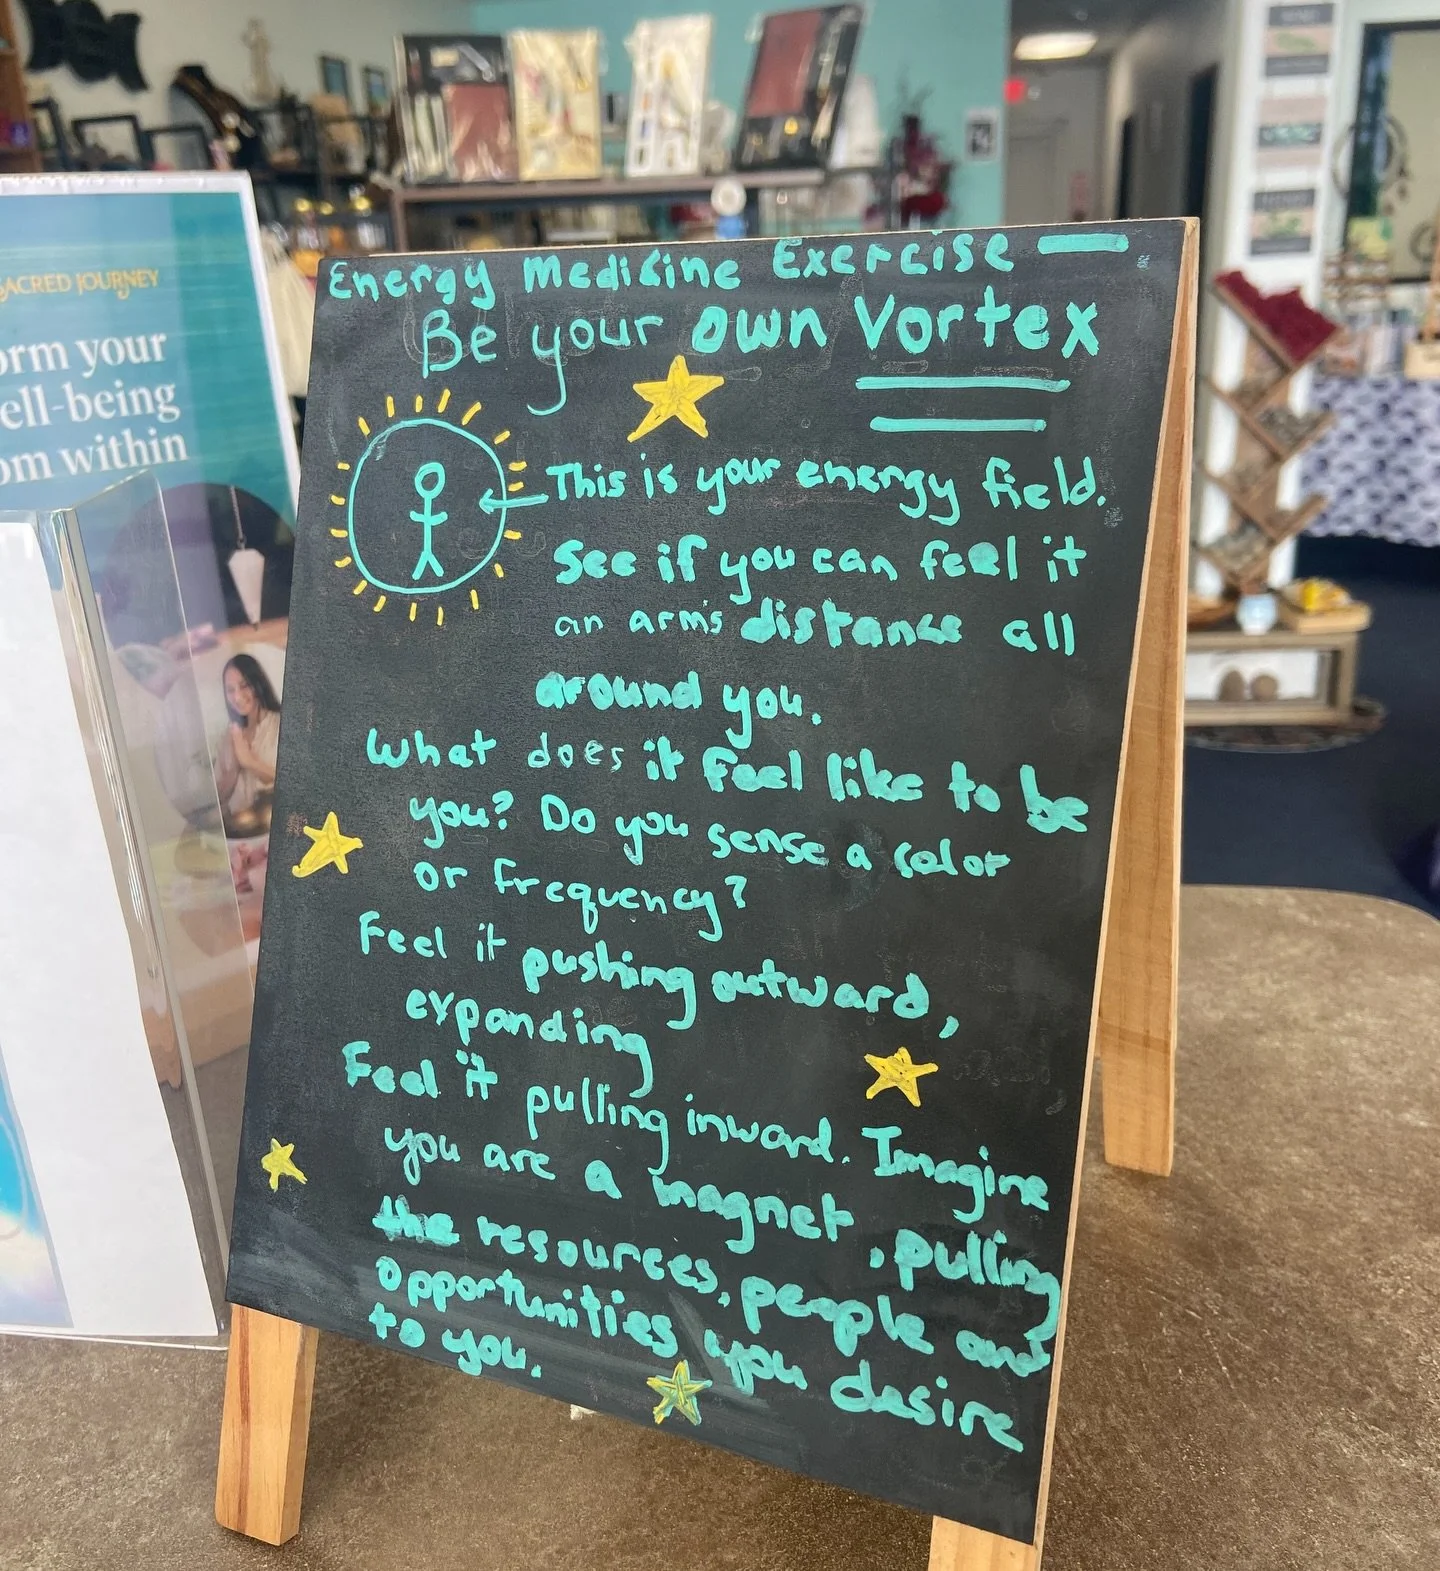 Energy Medicine Exercise —
Be your own Vortex
This is your energy field.
See if you can feel it
an arm's distance all
around you.
What does it feel like to be
you? Do you sense a color
or frequency?
Feel it pushing outward,
expanding
Feel it pulling inward. Imagine
you are a magnet, pulling
the resources, people and
opportunities you desire
to you.
SACRED JOURNEY
orm your
ell-being
om within